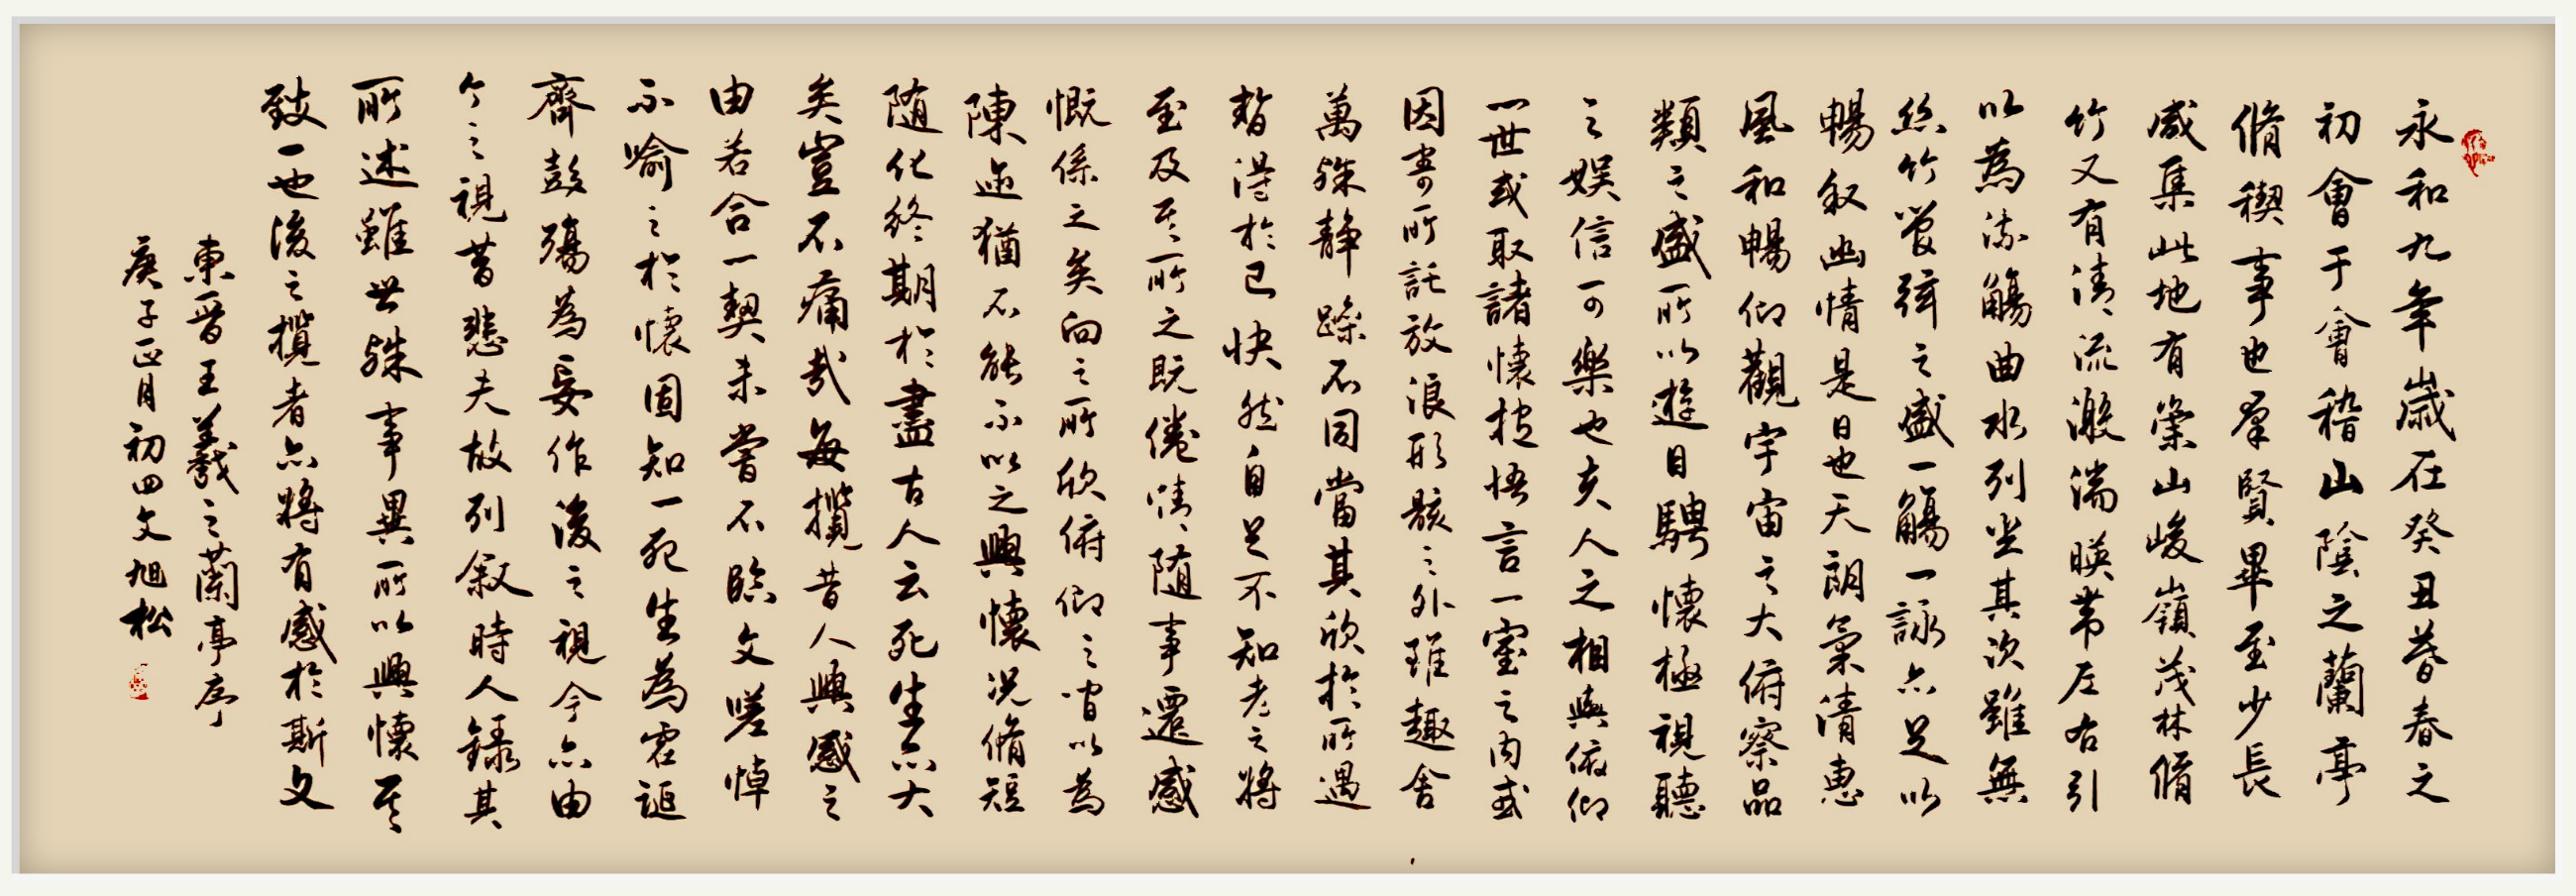 永和九年歲在癸丑暮春之
初會于會稽山陰之蘭亭
脩稧事也羣賢畢至少長
咸集此地有崇山峻嶺茂林脩
竹又有清流激湍暎帶左右引
以為流觴曲水列坐其次雖無
絲竹管弦之盛一觴一詠亦足以
暢叙幽情是日也天朗氣清惠
風和暢仰觀宇宙之大俯察品
類之盛所以遊目騁懷極視聽
之娛信可樂也夫人之相與俯仰
一世或取諸懷抱悟言一室之內或
因寄所託放浪形骸之外雖趣舍
萬殊静躁不同當其欣於所遇
暫得於己快然自足不知老之將
至及其所之既倦情随事遷感
慨係之矣向之所欣俯仰之間以為
陳迹猶不能不以之興懷況脩短
随化終期於盡古人云死生亦大
矣豈不痛哉每攬昔人興感之
由若合一契未嘗不臨文嗟悼
不喻之於懷固知一死生為虛誕
齊彭殤為妄作後之視今亦由
今之視昔悲夫故列叙時人錄其
所述雖世殊事異所以興懷其
致一也後之攬者亦將有感於斯文
東晉王羲之蘭亭序
庚子正月初四文旭松